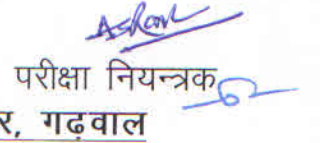 परीक्षा नियन्त्रक
र, गढ़वाल